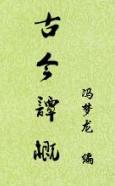 古今谭概
冯梦龙 编